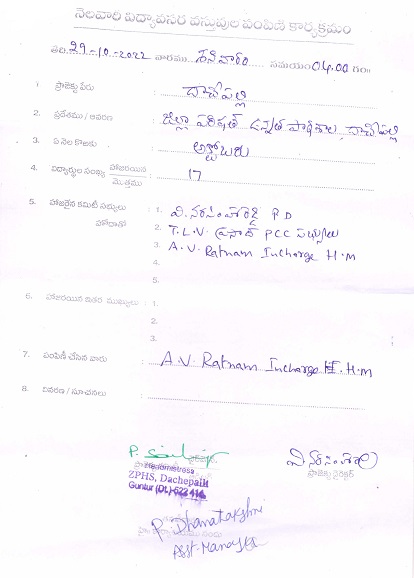 నెలవారి విద్యావసర వస్తువుల పంపిణీ కార్యక్రమం
తేది 29-10-2022 వారము శనివారం సమయం 04.00 గం॥
1 ప్రాజెక్టు పేరు : దాచేపల్లి
2. ప్రదేశము / ఆవరణ : జిల్లా పరిషత్ ఉన్నత పాఠశాల, దాచేపల్లి
3. ఏ నెల కొఱకు : అక్టోబరు
4. విద్యార్థుల సంఖ్య హాజరయిన / మొత్తము : 17
5. హాజరైన కమిటీ సభ్యులు : 1. వి. నరసింహారెడ్డి P D
హోదాతో 2. T.L.V. ప్రసాద్ PCC సభ్యులు
3. A.V. Ratnam Incharge H.M
4.
5.
6. హాజరయిన ఇతర ముఖ్యులు : 1.
2.
3.
7. పంపిణీ చేసిన వారు : A.V. Ratnam Incharge H.M
8. వివరణ / సూచనలు :
ప్రాజెక్టు డైరెక్టర్
Headmistress
ZPHS, Dachepalli
Guntur (Dt.)-522 414
P. Dhanalakshmi
Asst-Manager